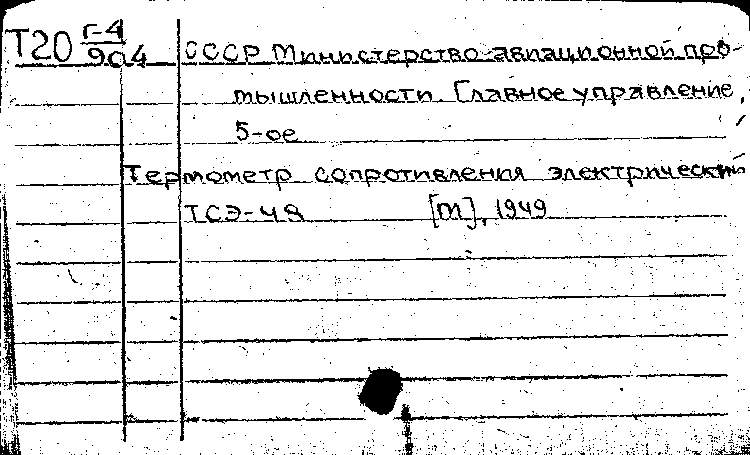 Т20 Г-4
904
СССР Министерство авиационной про-
мышленности. Главное управление,
5-ое
Термометр сопротивления электрический
ТСЭ-48 [М], 1949